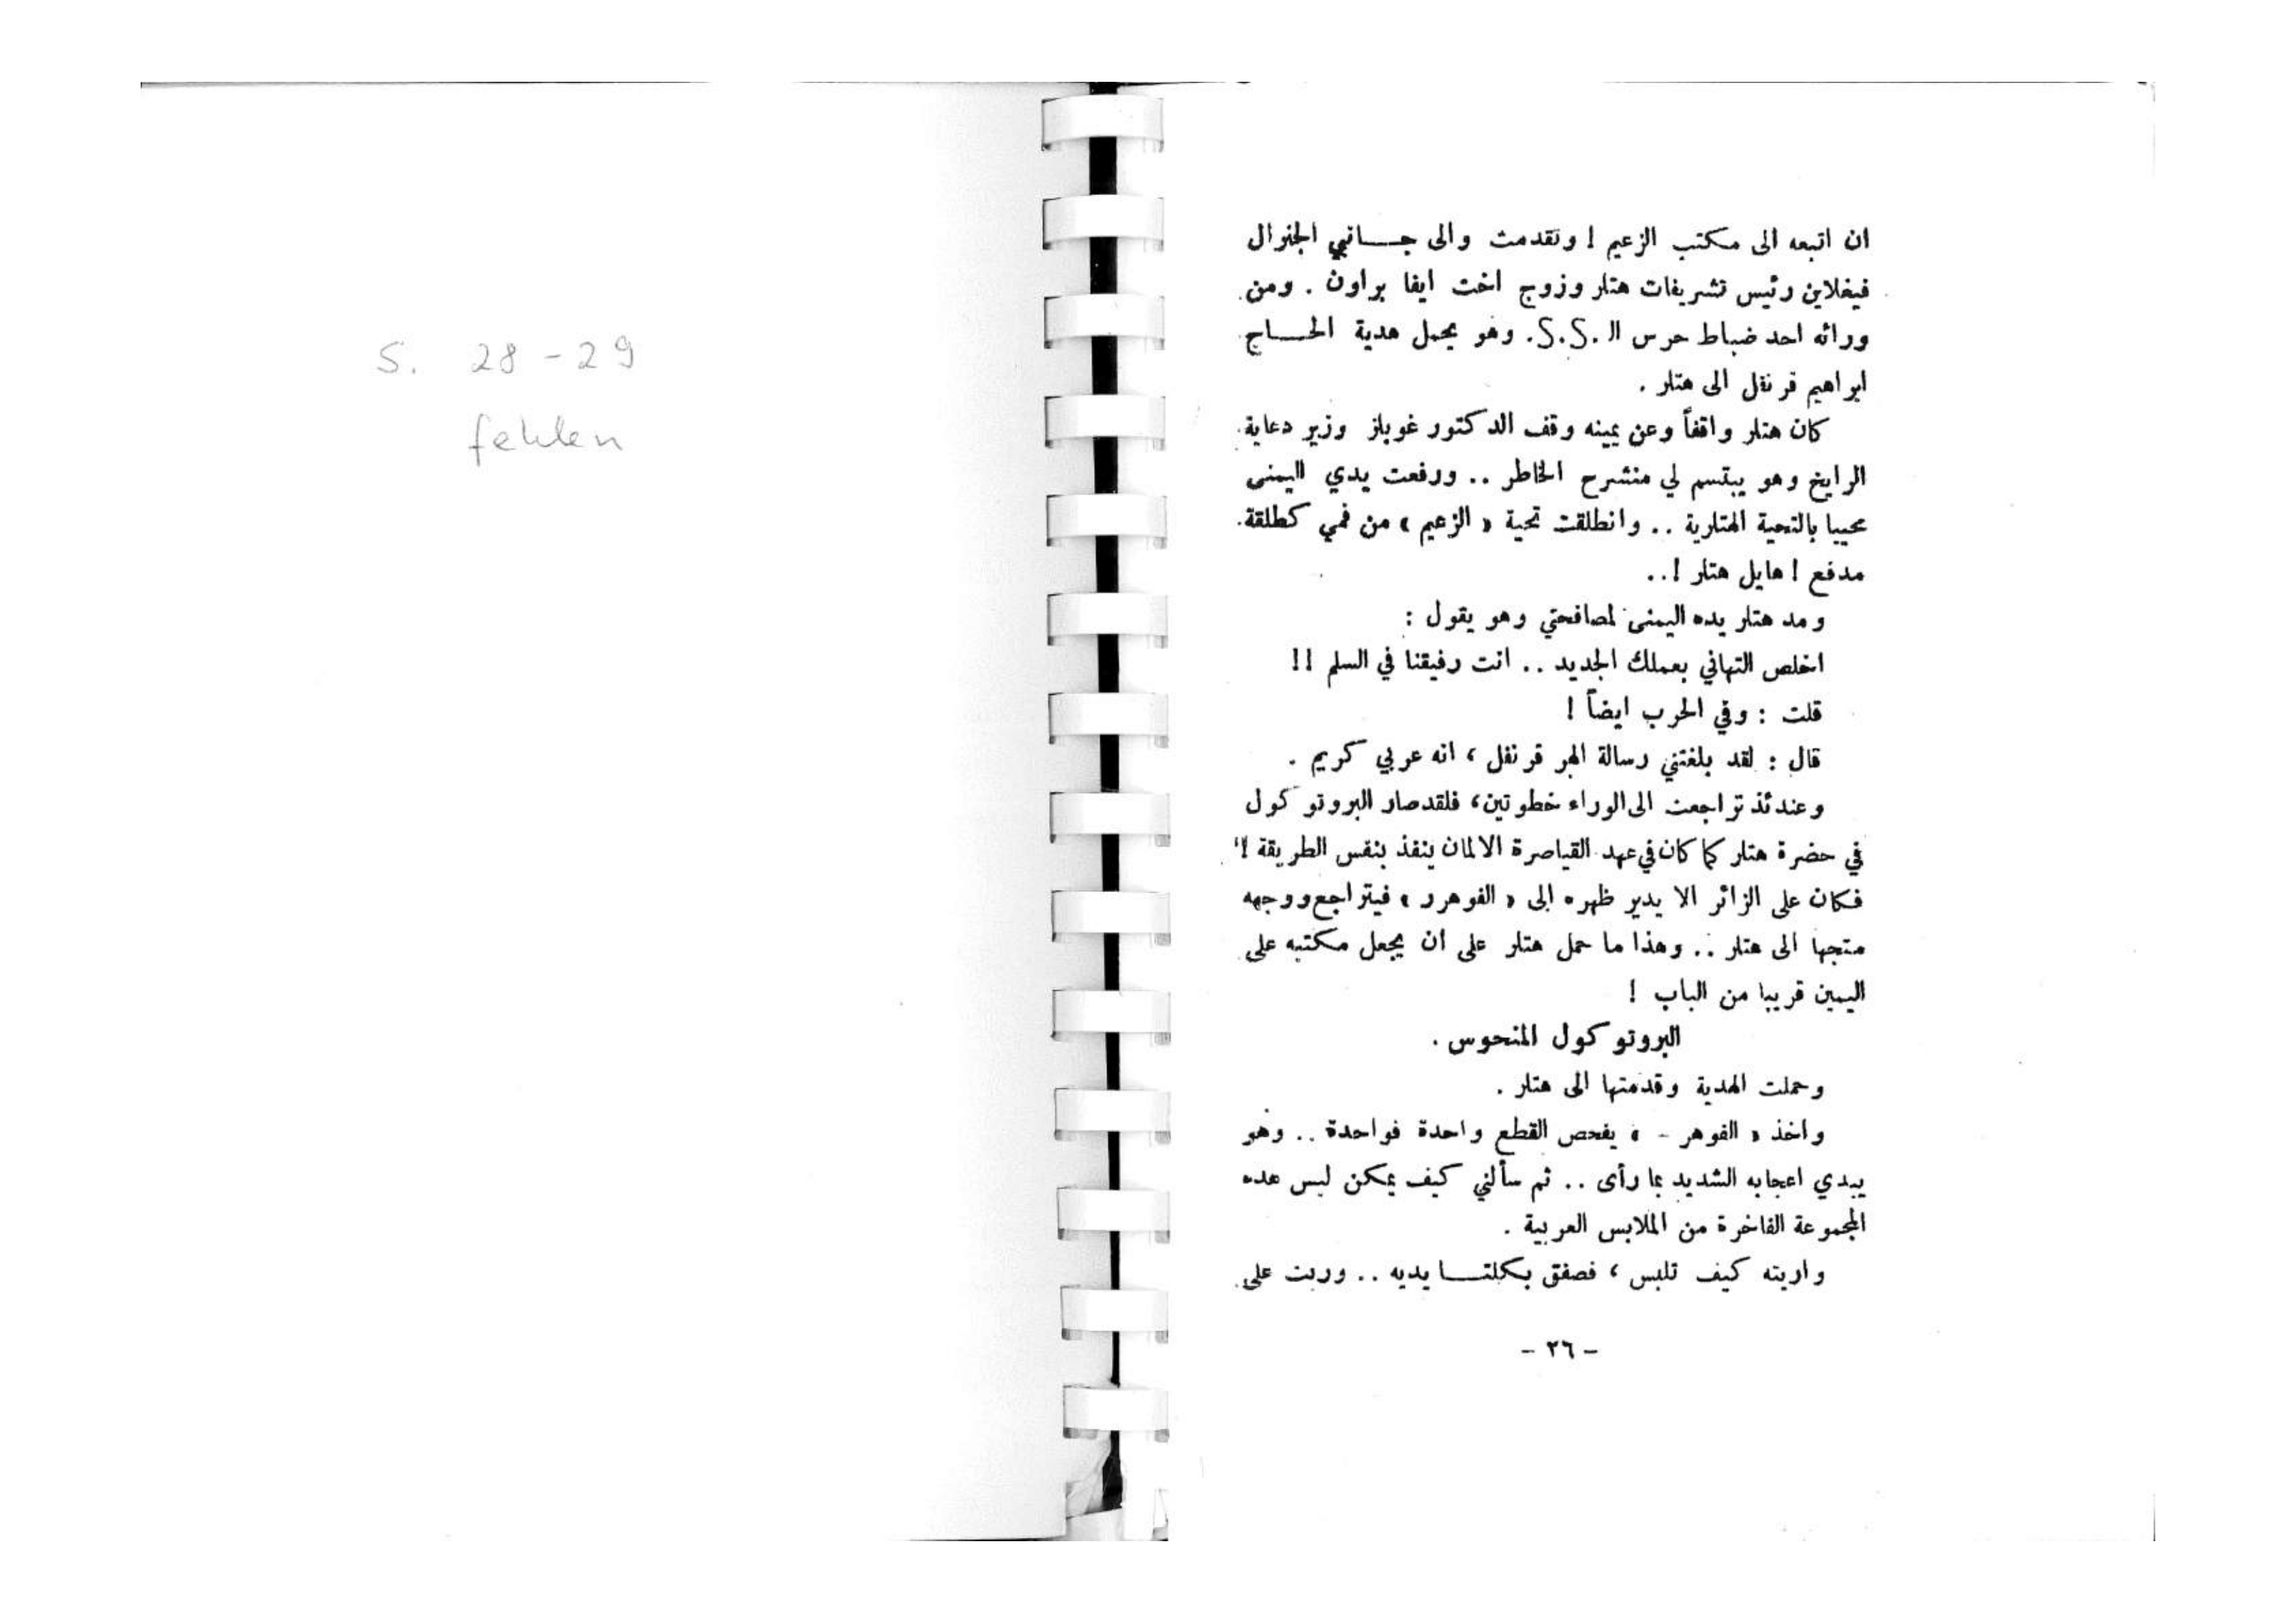 S. 28-29
fehlen
ان اتبعه الى مكتب الزعيم ! وتقدمت والى جـــانبي الجنرال
فيغلاين رئيس تشريفات هتلر وزوج اخت ايفا براون . ومن
ورائه احد ضباط حرس الـ .S.S. وهو يحمل هدية الحـــاج
ابراهيم قرنفل الى هتلر .
كان هتلر واقفاً وعن يمينه وقف الدكتور غوبلز وزير دعاية
الرايخ وهو يبتسم لي منشرح الخاطر .. ورفعت يدي اليمنى
محييا بالتحية الهتلرية .. وانطلقت تحية « الزعيم » من فمي كطلقة
مدفع ! هايل هتلر ! ..
ومد هتلر يده اليمنى لمصافحتي وهو يقول :
اخلص التهاني بعملك الجديد .. انت رفيقنا في السلم !!
قلت : وفي الحرب ايضاً !
قال : لقد بلغتني رسالة الهر قرنفل ، انه عربي كريم .
وعندئذ تراجعت الى الوراء خطوتين، فلقد صار البروتوكول
في حضرة هتلر كما كان في عهد القياصرة الالمان ينفذ بنفس الطريقة !
فكان على الزائر الا يدير ظهره الى « الفوهرر » فيتراجع ووجهه
متجها الى هتلر .. وهذا ما حمل هتلر على ان يجعل مكتبه على
اليمين قريبا من الباب !
البروتوكول المنحوس .
وحملت الهدية وقدمتها الى هتلر .
واخذ « الفوهر - » يفحص القطع واحدة فواحدة .. وهو
يبدي اعجابه الشديد بما رأى .. ثم سألني كيف يمكن لبس هده
المجموعة الفاخرة من الملابس العربية .
واريته كيف تلبس ، فصفق بكلتـــا يديه .. وربت على
- ٢٦ -